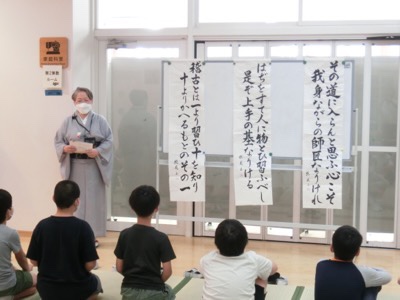 その道に入らんと思ふ心こそ
我身ながらの師匠なりけれ
はぢをすて人に物とひ習ふべし
是ぞ上手の基なりける
稽古とは一より習ひ十を知り
十よりかへるもとのその一